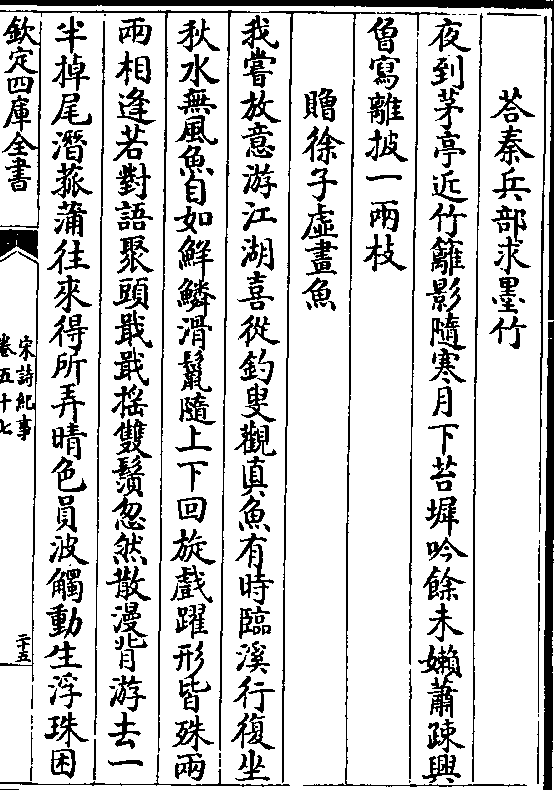 荅秦兵部求墨竹
夜到茅亭近竹籬影隨寒月下苔墀吟餘未嬾蕭疎興
曾寫離披一兩枝
贈徐子虛畫魚
我嘗放意游江湖喜從釣叟觀真魚有時臨溪行復坐
秋水無風魚自如鮮鱗滑鬛隨上下回旋戲躍形皆殊兩
兩相逢若對語聚頭戢戢揺雙鬚忽然散漫背游去一
半掉尾潛菰蒲往來得所弄晴色員波觸動生浮珠困
欽定四庫全書
宋詩紀事
卷五十七
二十五